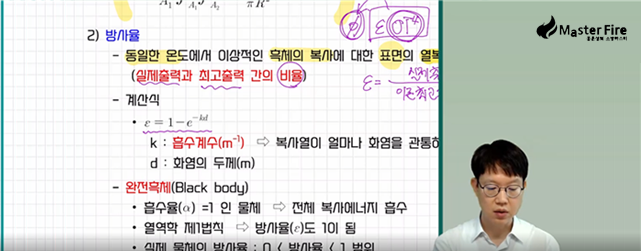 Master Fire
φ εσT⁴
2) 방사율
- 동일한 온도에서 이상적인 흑체의 복사에 대한 표면의 열복
(실제출력과 최고출력 간의 비율)
ε =
- 계산식
• ε = 1 - e^{-kd}
k : 흡수계수(m⁻¹) ⇨ 복사열이 얼마나 화염을 관통하
d : 화염의 두께(m)
- 완전흑체(Black body)
• 흡수율(α) =1 인 물체 ⇨ 전체 복사에너지 흡수
• 열역학 제1법칙 ⇨ 방사율(ε)도 1이 됨
• 실제 물체의 방사율 : 0 < 방사율 < 1 범위